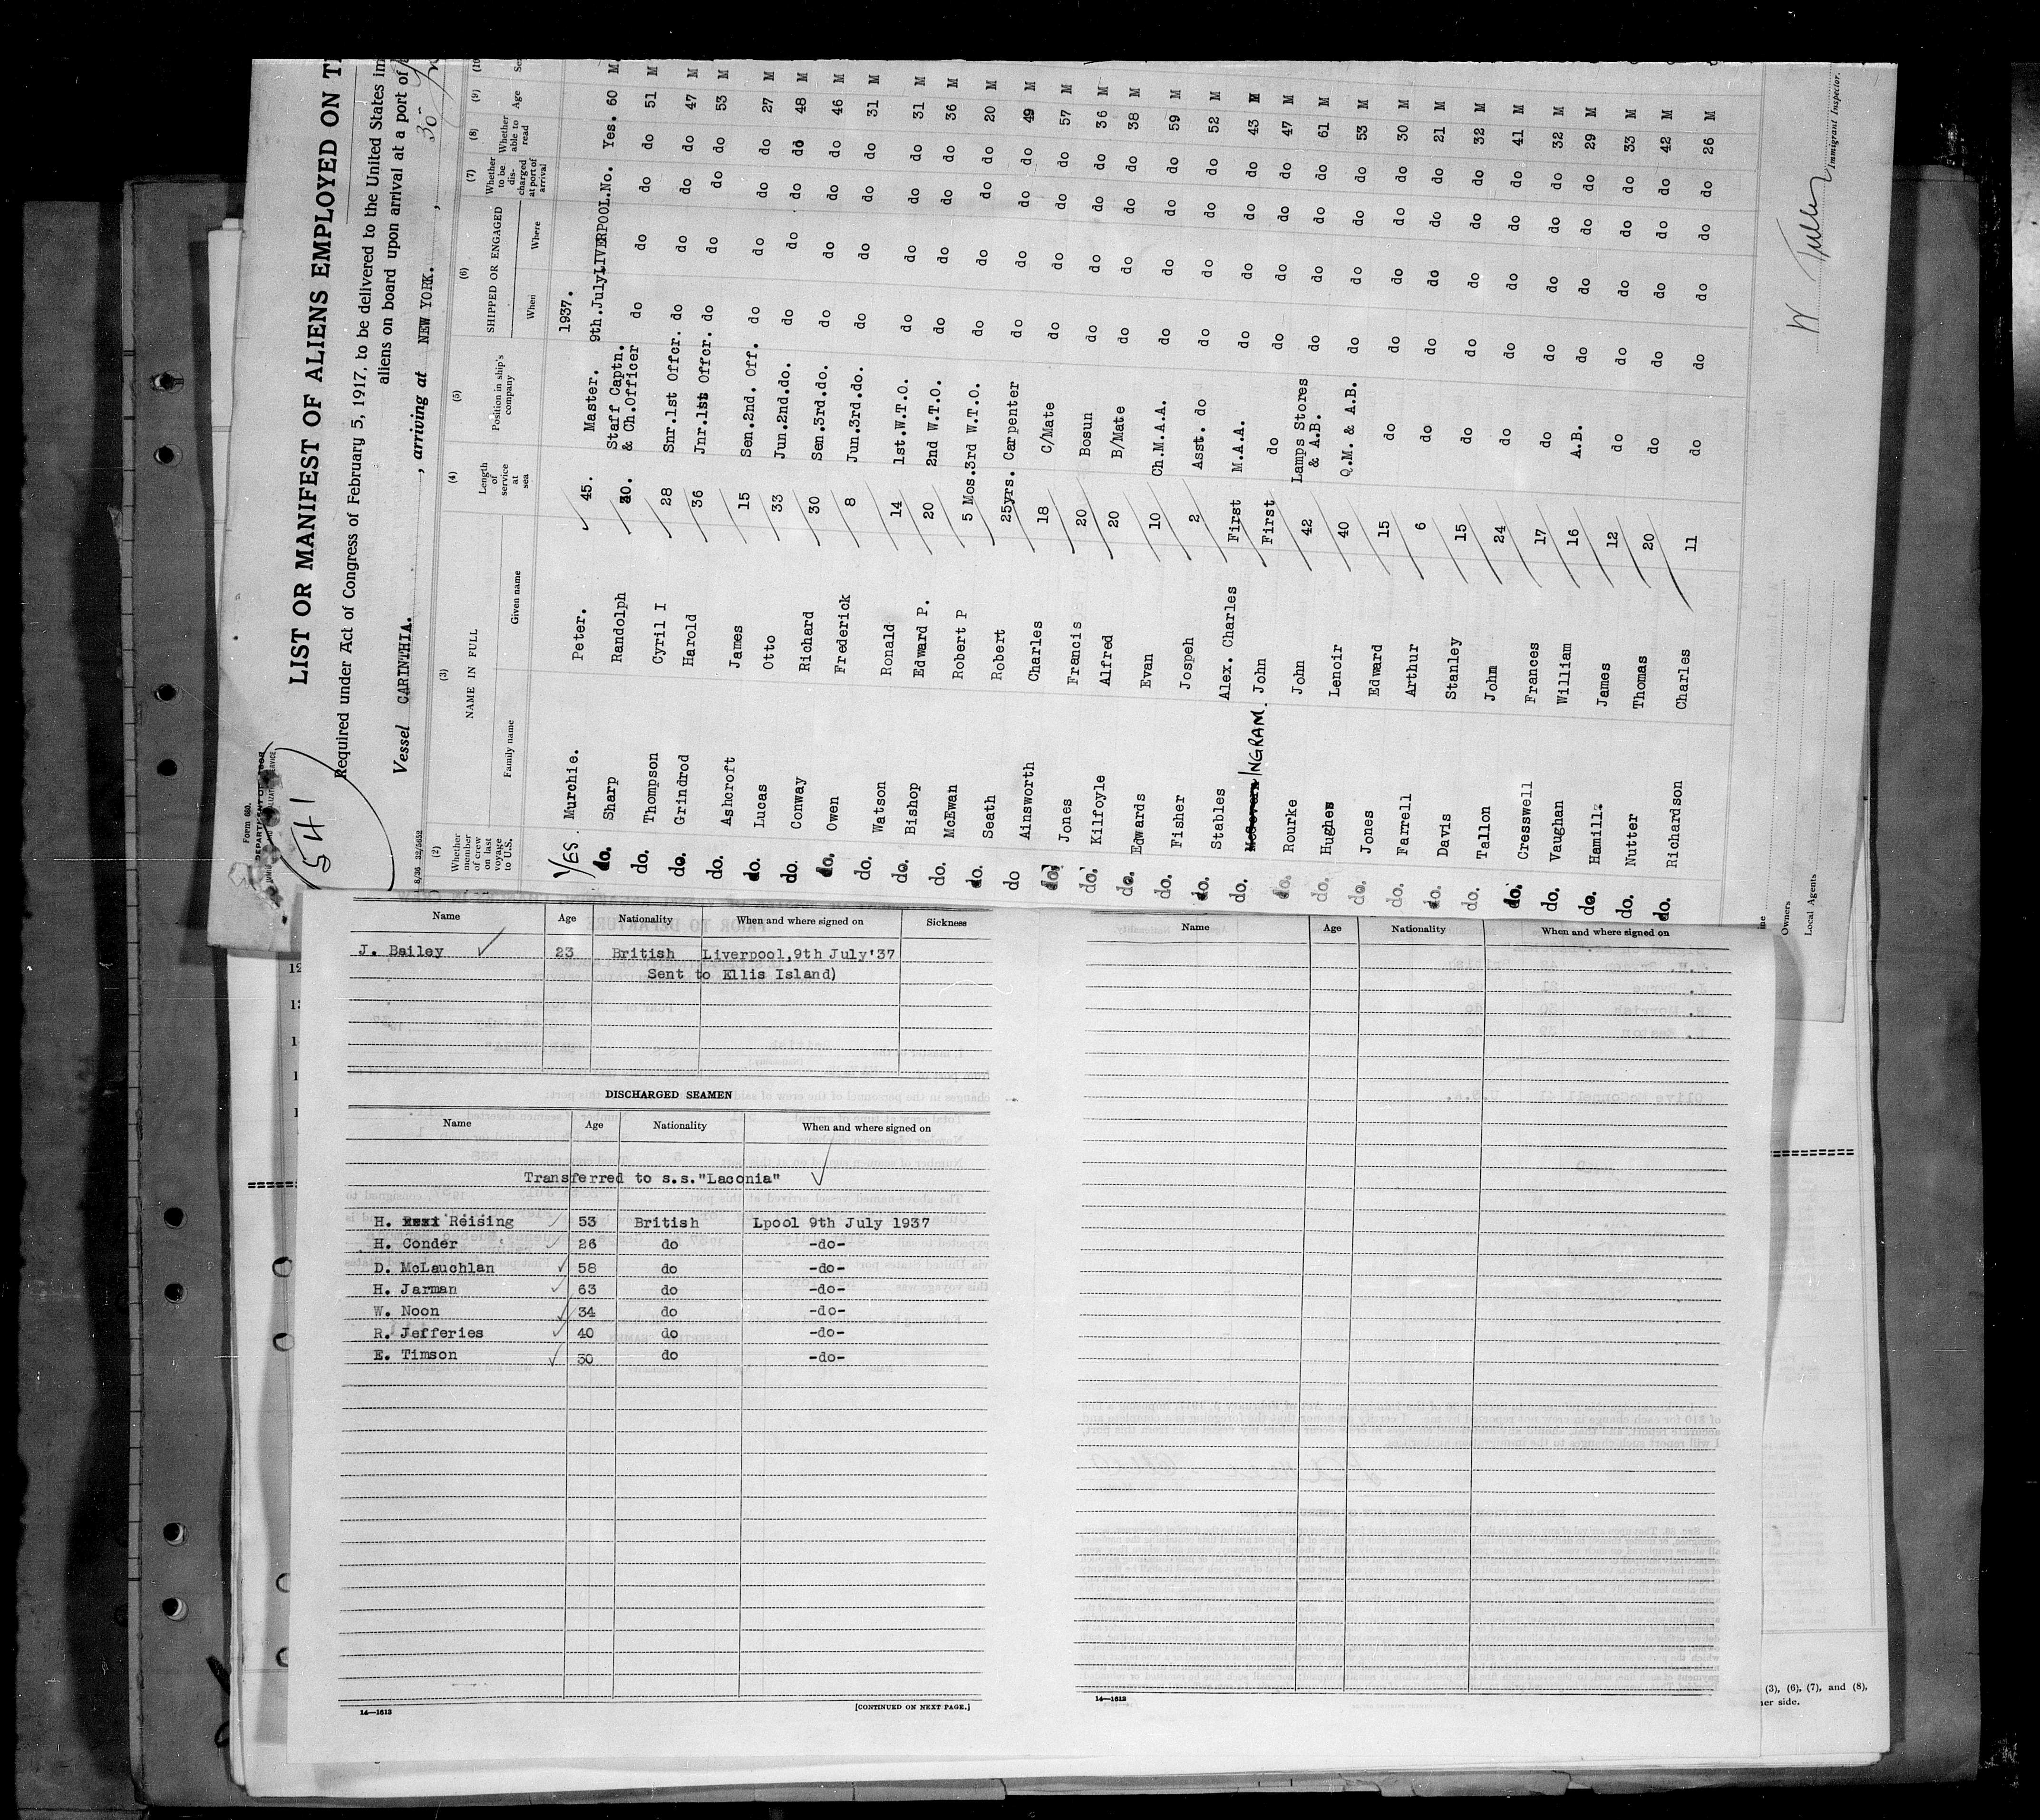 Form 680.
541
LIST OR MANIFEST OF ALIENS EMPLOYED ON
Required under Act of Congress of February 5, 1917, to be delivered to the United States
aliens on board upon arrival at a port of
Vessel CARINTHIA. , arriving at NEW YORK. , 30
(2) (3) (4) (5) (6) (7) (8) (9)
Whether member of crew on last voyage to U.S. NAME IN FULL Family name Given name Length of service at sea Position in ship's company SHIPPED OR ENGAGED When Where Whether to be discharged at port of arrival Whether able to read Age
1937.
YES Murchie. Peter. 45. Master. 9th.July LIVERPOOL. No. Yes. 60 M.
do. Sharp Randolph 30. Staff Captn. & Ch.Officer do do do do 51 M
do. Thompson Cyril I 28 Snr.1st Offcr. do do do do 47 M
do. Grindrod Harold 36 Jnr.1st Offcr. do do do do 53 M
do. Ashcroft James 15 Sen.2nd. Off. do do do do 27 M
do. Lucas Otto 33 Jun.2nd.do. do do do do 48 M
do. Conway Richard 30 Sen.3rd.do. do do do do 46 M
do. Owen Frederick 8 Jun.3rd.do. do do do do 31 M
do. Watson Ronald 14 1st.W.T.O. do do do do 31 M
do. Bishop Edward P. 20 2nd W.T.O. do do do do 36 M
do. McEwan Robert P 5 Mos. 3rd W.T.O. do do do do 20 M
do. Seath Robert 25yrs. Carpenter do do do do 49 M
do Ainsworth Charles 18 C/Mate do do do do 57 M
do. Jones Francis 20 Bosun do do do do 36 M
do. Kilfoyle Alfred 20 B/Mate do do do do 38 M
do. Edwards Evan 10 Ch.M.A.A. do do do do 59 M
do. Fisher Jospeh 2 Asst. do do do do do 52 M
do. Stables Alex. Charles First M.A.A. do do do do 43 M
do. INGRAM. John First do do do do do 47 M
do. Rourke John 42 Lamps Stores & A.B. do do do do 61 M
do. Hughes Lenoir 40 Q.M. & A.B. do do do do 53 M
do. Jones Edward 15 do do do do do 30 M
do. Farrell Arthur 6 do do do do do 21 M
do. Davis Stanley 15 do do do do do 32 M
do. Tallon John 24 do do do do do 41 M
do. Cresswell Frances 17 do do do do do 32 M
do. Vaughan William 16 A.B. do do do do 29 M
do. Hamill James 12 do do do do do 33 M
do. Nutter Thomas 20 do do do do do 42 M
do. Richardson Charles 11 do do do do do 26 M
Owners
Local Agents
Immigrant Inspector.
Name Age Nationality When and where signed on Sickness
J. Bailey 23 British Liverpool, 9th July'37
Sent to Ellis Island)
DISCHARGED SEAMEN
Name Age Nationality When and where signed on
Transferred to s.s."Laconia"
H. Reising 53 British Lpool 9th July 1937
H. Conder 26 do -do-
D. McLauchlan 58 do -do-
H. Jarman 63 do -do-
W. Noon 34 do -do-
R. Jefferies 40 do -do-
E. Timson 30 do -do-
14—1613 [CONTINUED ON NEXT PAGE.]
Name Age Nationality When and where signed on
14—1613
(3), (6), (7), and (8),
er side.